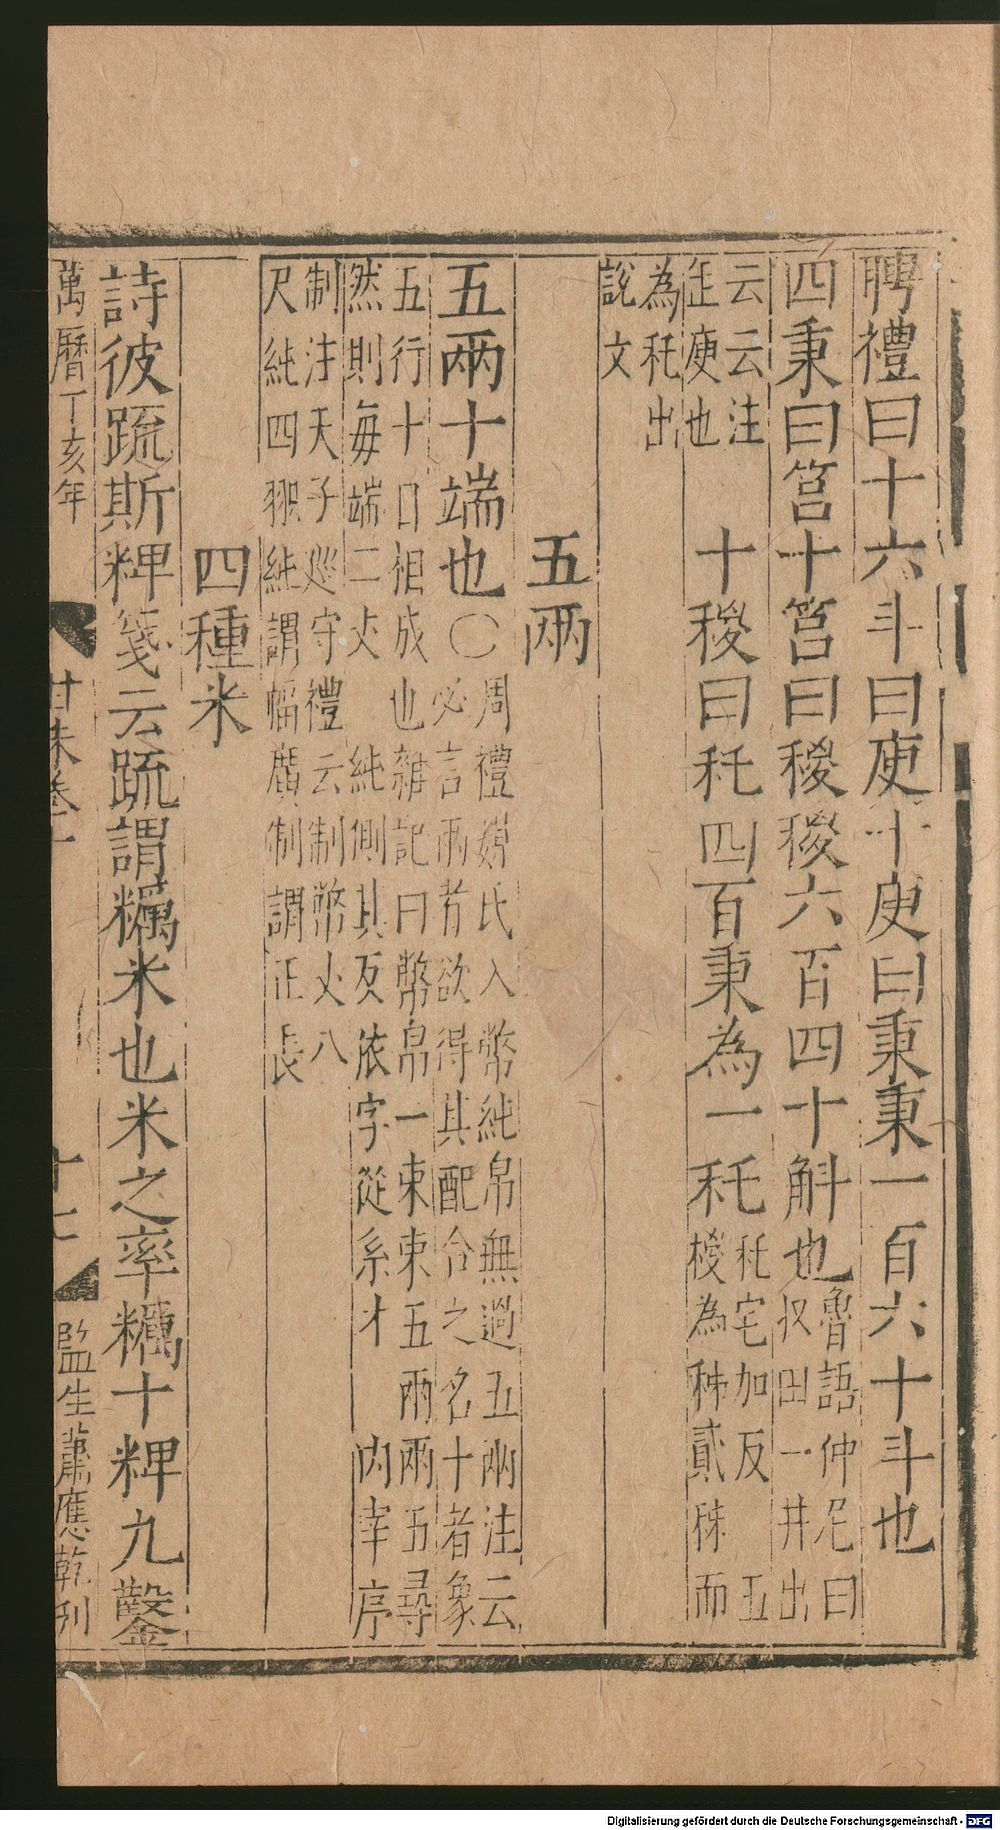 聘禮曰十六斗曰庾十庾曰秉秉一百六十斗也
四秉曰筥十筥曰稯稯六百四十斛也魯語仲尼曰
收田一井出
云云注
庾也
十稯曰秅四百秉為一秅秅宅加反五
稯為秭貳秭而
為秅出
說文
五兩
五兩十端也○周禮媒氏入幣純帛無過五兩注云
必言兩者欲得其配合之名十者象
五行十日相成也雜記曰幣帛一束束五兩兩五尋
然則每端二丈 純側其反依字從糸才 内宰序
制注天子巡守禮云制幣丈八
尺純四𦐇純謂幅廣制謂正長
四種米
詩彼疏斯粺箋云疏謂糲米也米之率糲十粺九鑿
萬曆丁亥年
十七
監生蕭應乾刊
Digitalisierung gefördert durch die Deutsche Forschungsgemeinschaft - DFG